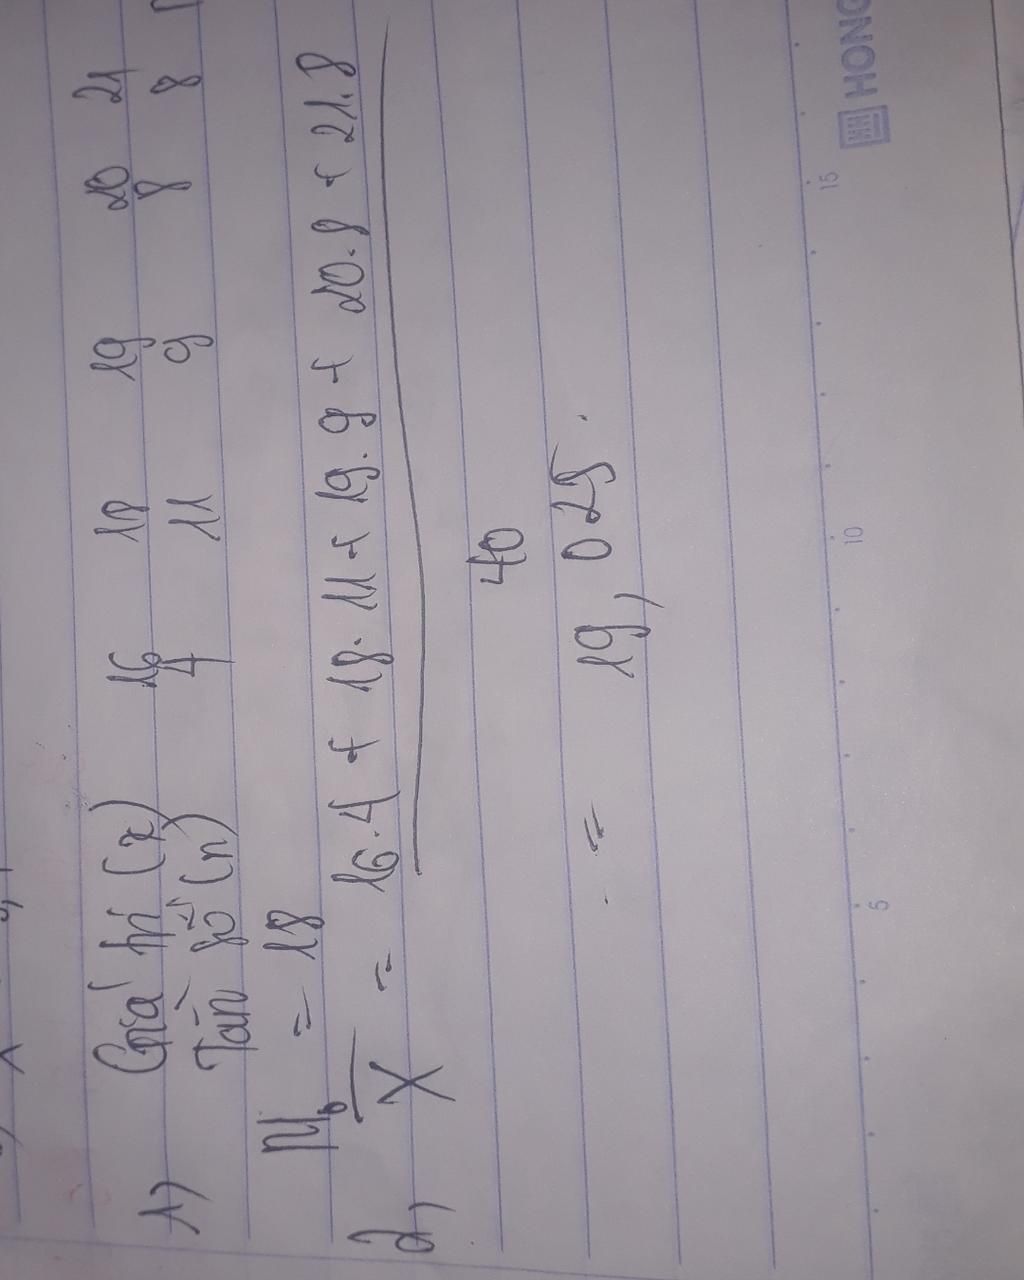 1) Giá trị (x) 16 18 19 20 21
Tần số (n) 4 11 9 8 8
M₀ = 18
2, X̅ = 16.4 + 18.11 + 19.9 + 20.8 + 21.8
40
= 19,025.
5 10 15
HONG